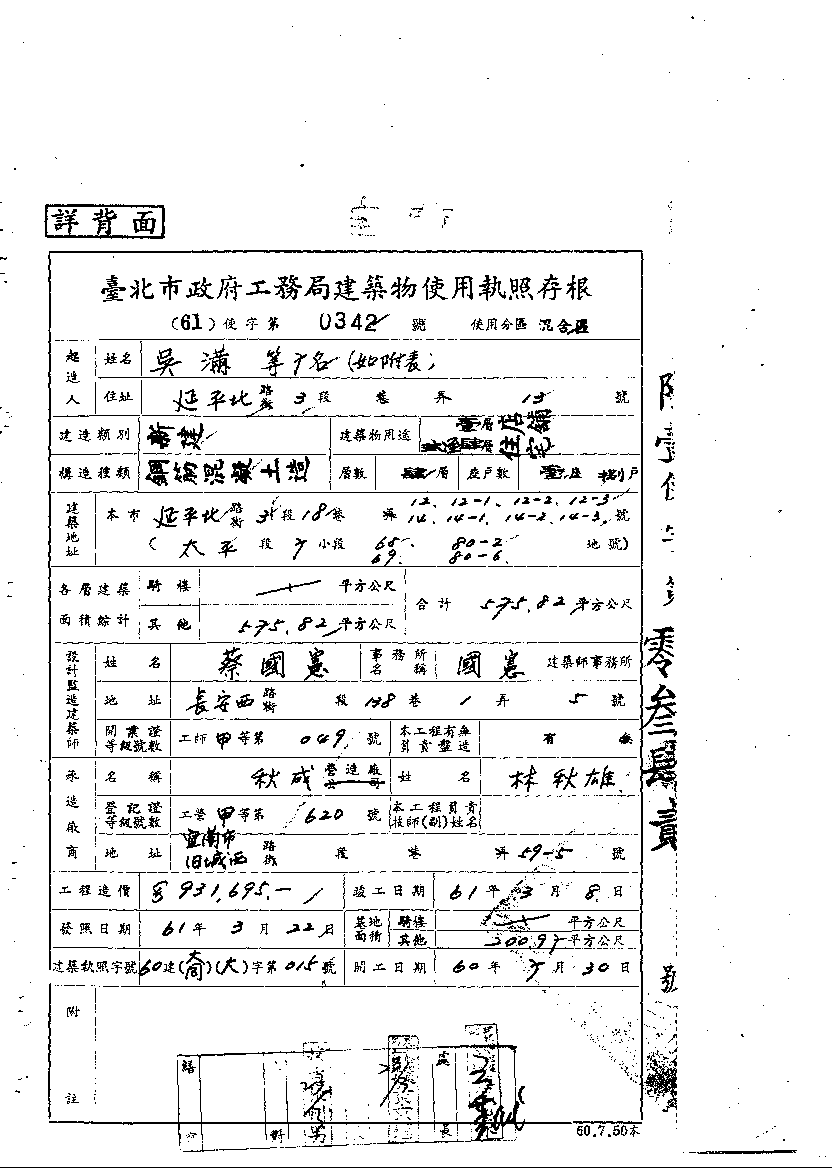 詳背面
臺北市政府工務局建築物使用執照存根
(61)使字第 0342 號 使用分區 混合區
起造人 姓名 吳滿 等 名(如附表)
住址 延平北 路街 3 段 巷 弄 13 號
建造類別 新建 建築物用途 壹層店舖 住宅
構造種類 鋼筋混凝土造 層數 肆層 座戶數 壹座 捌戶
建築地址 本市 延平北 路街 3 段 18 巷 弄 12、12-1、12-2、12-3 14、14-1、14-2、14-3 號
(太平 段 小段 68、69、80-2 80-6 地號)
各層建築面積綜計 騎樓 平方公尺 合計 575.82 平方公尺
其他 575.82 平方公尺
設計監造建築師 姓名 蔡國憲 事務所名稱 國憲 建築師事務所
地址 長安西 路街 段 138 巷 1 弄 5 號
開業證等級號數 工師甲等第 049 號 本工程有無負責監造 有 無
承造廠商 名稱 秋成 營造廠公司 姓名 林秋雄
登記證等級號數 工營甲等第 620 號 本工程負責技師(副)姓名
地址 宜蘭市旧城西 路街 段 巷 弄 59-5 號
工程造價 931,695.- 竣工日期 61 年 3 月 8 日
發照日期 61 年 3 月 22 日 基地面積 騎樓 平方公尺
其他 200.97 平方公尺
建築執照字號 60 建( )(大)字第 015 號 開工日期 60 年 月 30 日
附註
繕 對 處長
60.7.50本
零叁肆貳
號